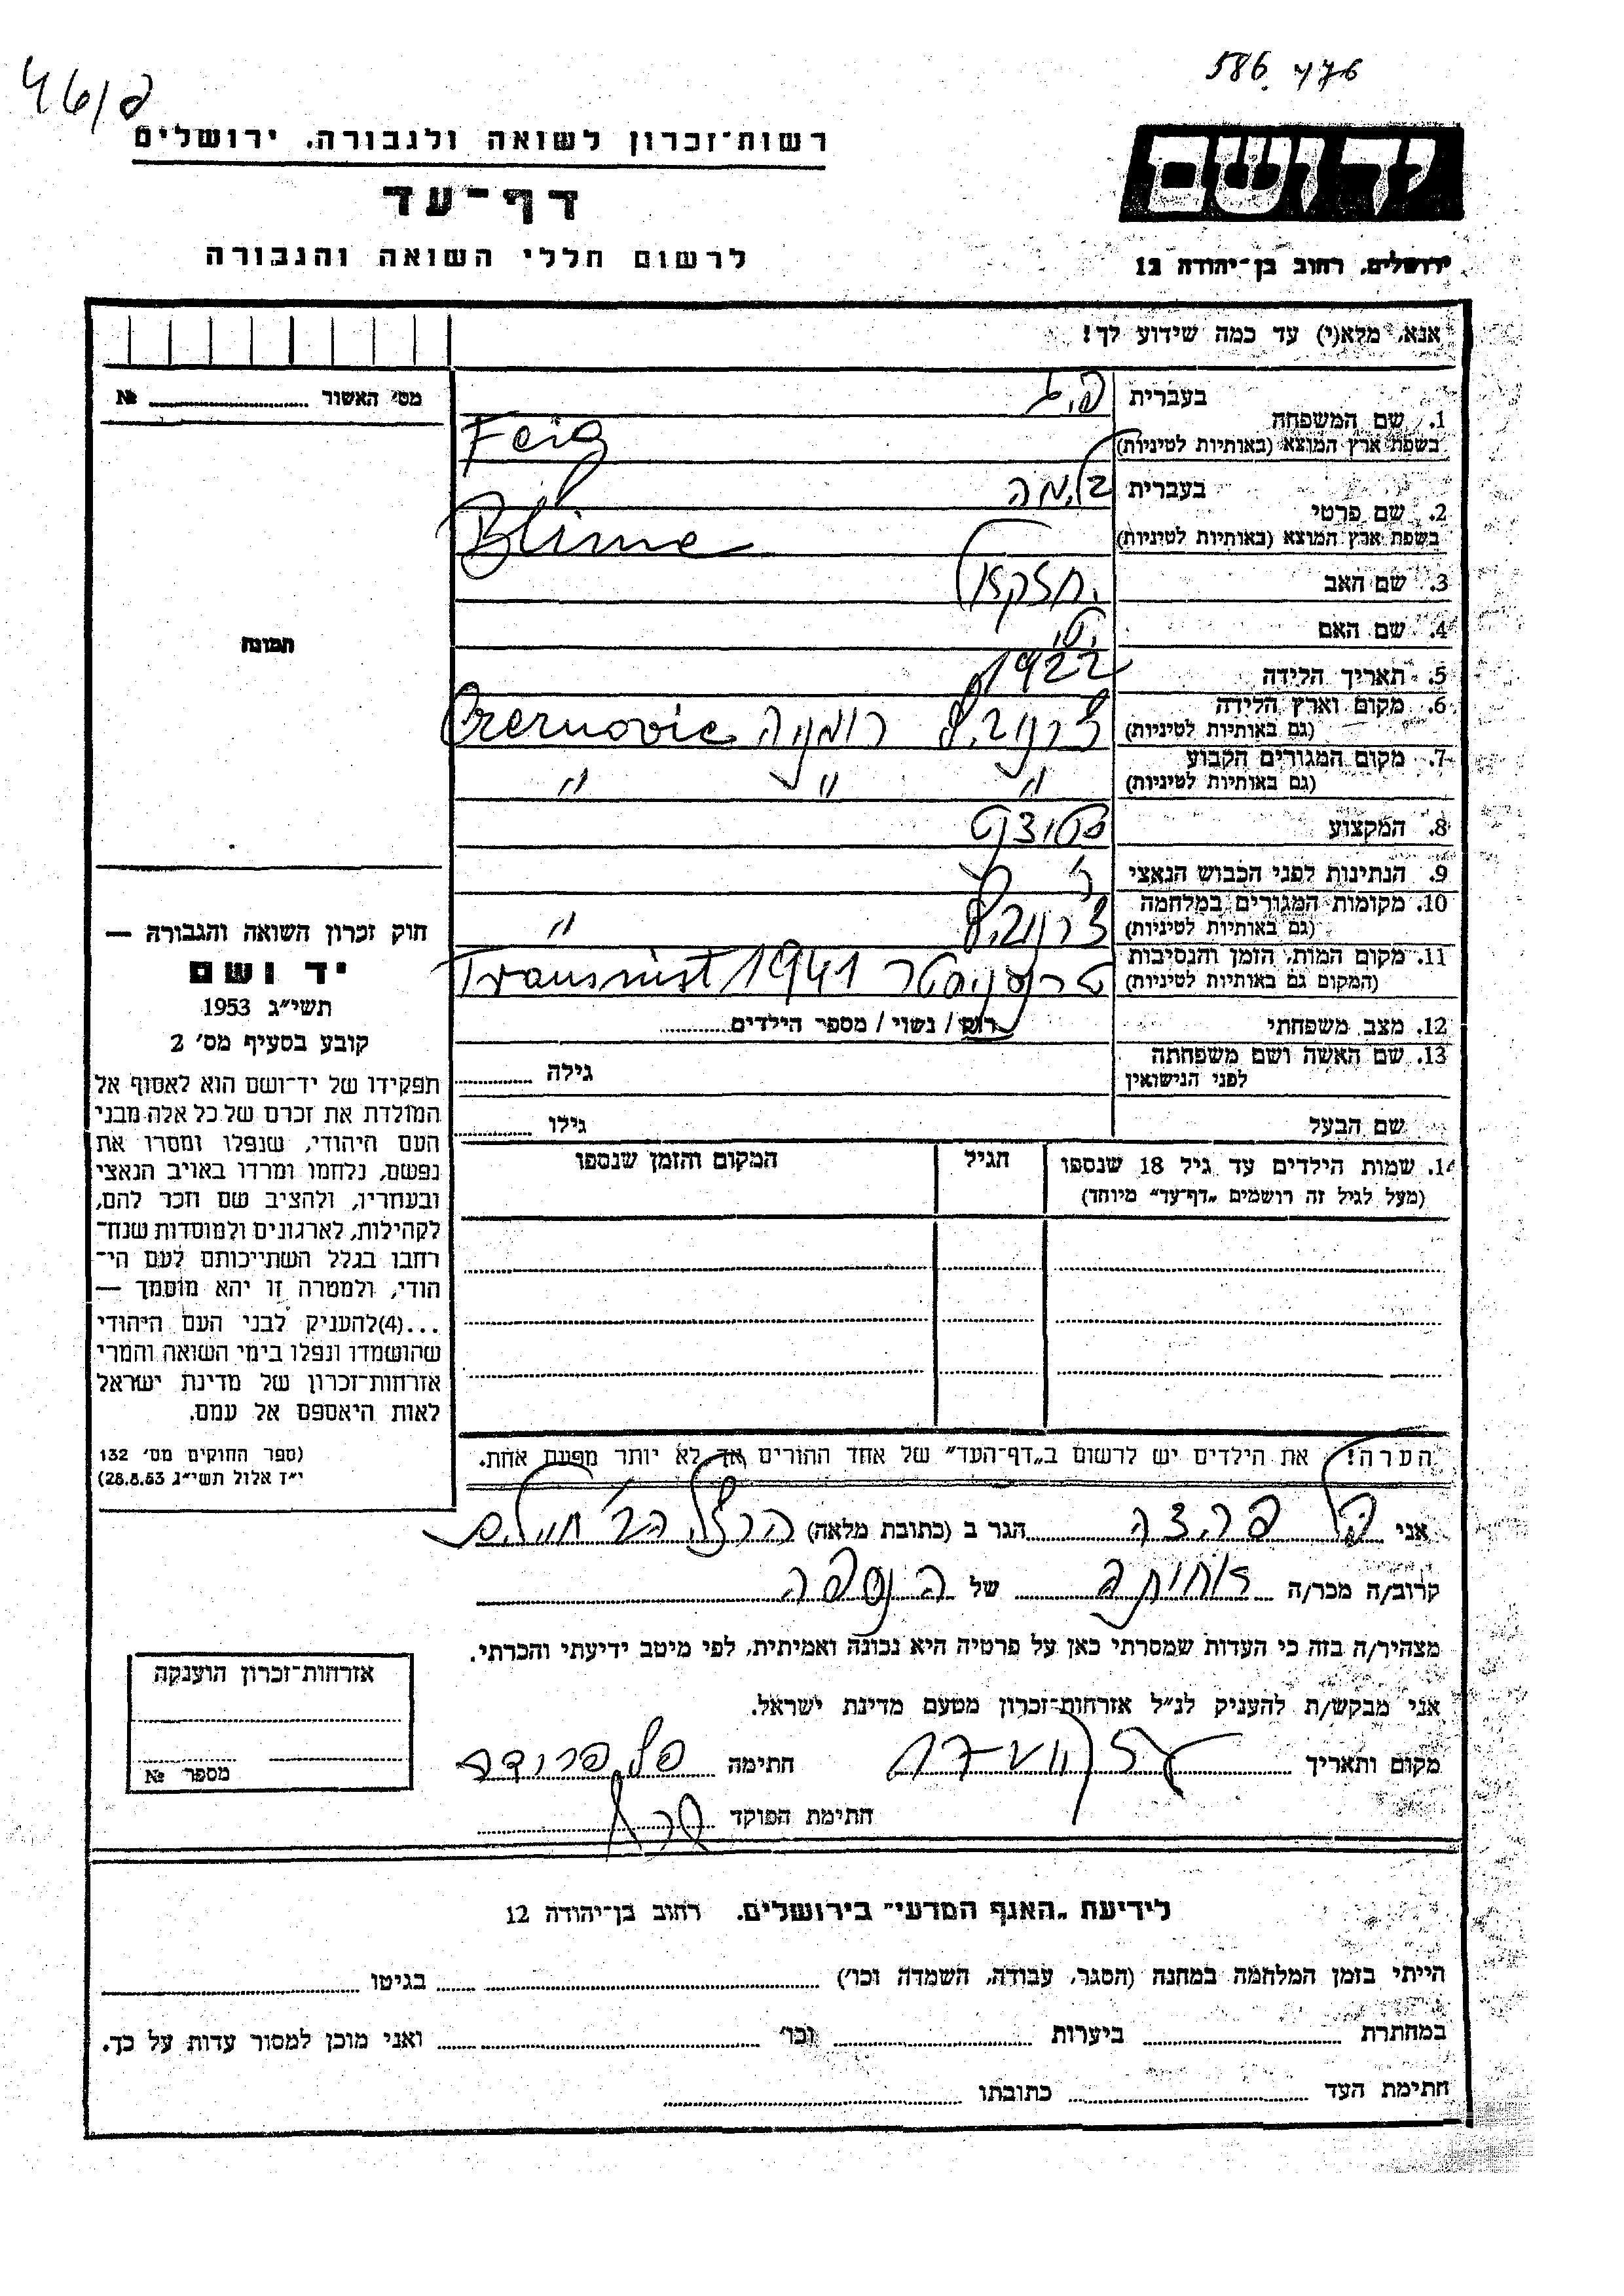 46/פ
586 476
רשות־זכרון לשואה ולגבורה. ירושלים
דף־עד
לרשום חללי השואה והגבורה
יד ושם
ירושלים, רחוב בן־יהודה 12
אנא, מלא(י) עד כמה שידוע לך!
מס׳ האשור № 
1. שם המשפחה בעברית פיג
בשפת ארץ המוצא (באותיות לטיניות) Feig
2. שם פרטי בעברית בלימה
בשפת ארץ המוצא (באותיות לטיניות) Blime
3. שם האב יחזקאל
4. שם האם
5. תאריך הלידה 1922
6. מקום וארץ הלידה (גם באותיות לטיניות) צרנוביץ רומניה Czernovic
7. מקום המגורים הקבוע (גם באותיות לטיניות) " " "
8. המקצוע סטודנט
9. הנתינות לפני הכבוש הנאצי
10. מקומות המגורים במלחמה (גם באותיות לטיניות) צרנוביץ "
11. מקום המות, הזמן והנסיבות (המקום גם באותיות לטיניות) טרנסניסטר 1941 Transnist
12. מצב משפחתי רוק / נשוי / מספר הילדים
13. שם האשה ושם משפחתה לפני הנישואין גילה
שם הבעל גילו
14. שמות הילדים עד גיל 18 שנספו
(מעל לגיל זה רושמים „דף־עד״ מיוחד)
הגיל
המקום והזמן שנספו
הערה! את הילדים יש לרשום ב„דף־העד״ של אחד ההורים אך לא יותר מפעם אחת.
תמונה
חוק זכרון השואה והגבורה —
יד ושם
תשי״ג 1953
קובע בסעיף מס׳ 2
תפקידו של יד־ושם הוא לאסוף אל
המולדת את זכרם של כל אלה מבני
העם היהודי, שנפלו ומסרו את
נפשם, נלחמו ומרדו באויב הנאצי
ובעוזריו, ולהציב שם וזכר להם,
לקהילות, לארגונים ולמוסדות שנח־
רבו בגלל השתייכותם לעם הי־
הודי, ולמטרה זו יהא מוסמך —
...(4)להעניק לבני העם היהודי
שהושמדו ונפלו בימי השואה והמרי
אזרחות־זכרון של מדינת ישראל
לאות היאספם אל עמם.
(ספר החוקים מס׳ 132
י״ז אלול תשי״ג 28.8.53)
אני הגר ב (כתובת מלאה)
קרוב/ה מכר/ה של הנספה
מצהיר/ה בזה כי העדות שמסרתי כאן על פרטיה היא נכונה ואמיתית, לפי מיטב ידיעתי והכרתי.
אני מבקש/ת להעניק לנ״ל אזרחות־זכרון מטעם מדינת ישראל.
מקום ותאריך חתימה
חתימת הפוקד
אזרחות־זכרון הוענקה
מספר №
לידיעת „האגף המדעי״ בירושלים. רחוב בן־יהודה 12
הייתי בזמן המלחמה במחנה (הסגר, עבודה, השמדה וכו׳) בגיטו
במחתרת ביערות וכו׳ ואני מוכן למסור עדות על כך.
חתימת העד כתובתו